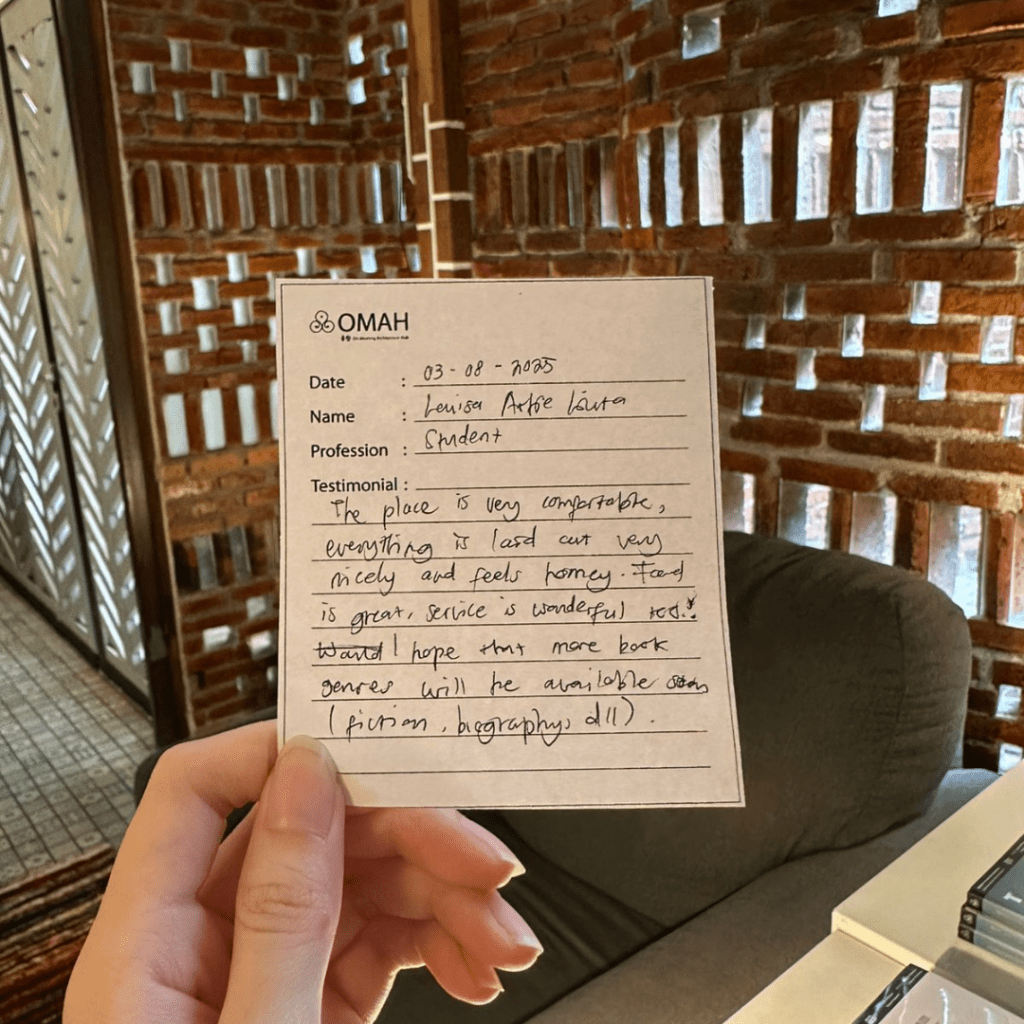 OMAH
Date : 03 - 08 - 2025
Name : Artie
Profession : Student
Testimonial :
The place is very comfortable,
everything is laid out very
nicely and feels homey. Food
is great, service is wonderful too!!
I hope that more book
genres will be available soon
(fiction, biography, dll).